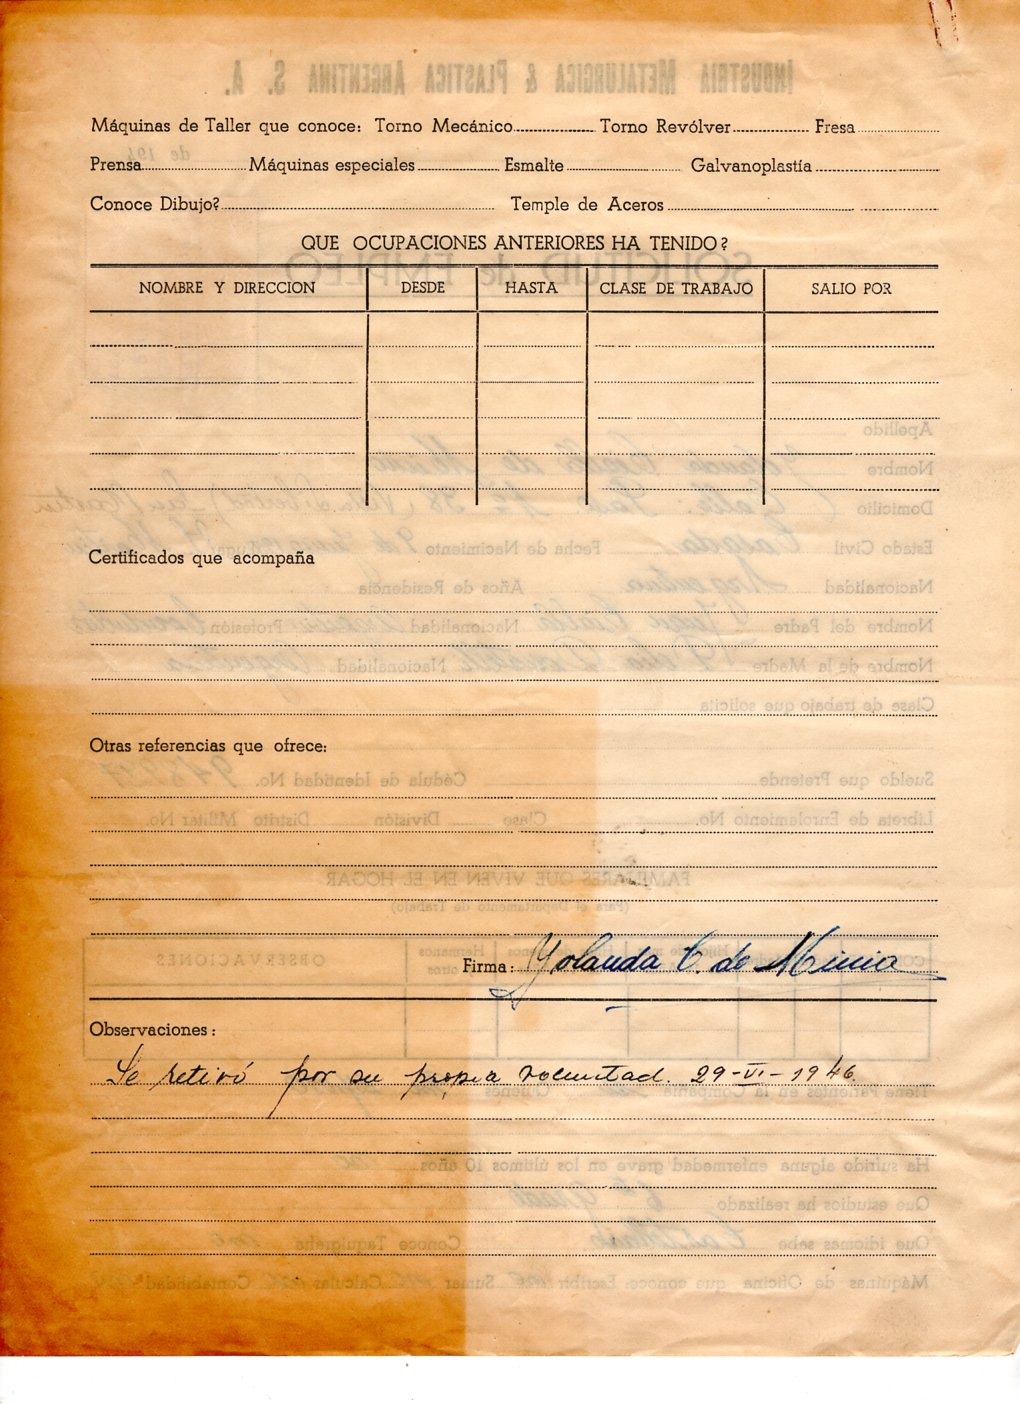 Máquinas de Taller que conoce: Torno Mecánico Torno Revólver Fresa
Prensa Máquinas especiales Esmalte Galvanoplastía
Conoce Dibujo? Temple de Aceros
QUE OCUPACIONES ANTERIORES HA TENIDO?
NOMBRE Y DIRECCION DESDE HASTA CLASE DE TRABAJO SALIO POR
Certificados que acompaña
Otras referencias que ofrece:
Firma: Yolanda C. de Minia
Observaciones:
Se retiró por su propia voluntad. 29-VI-1946